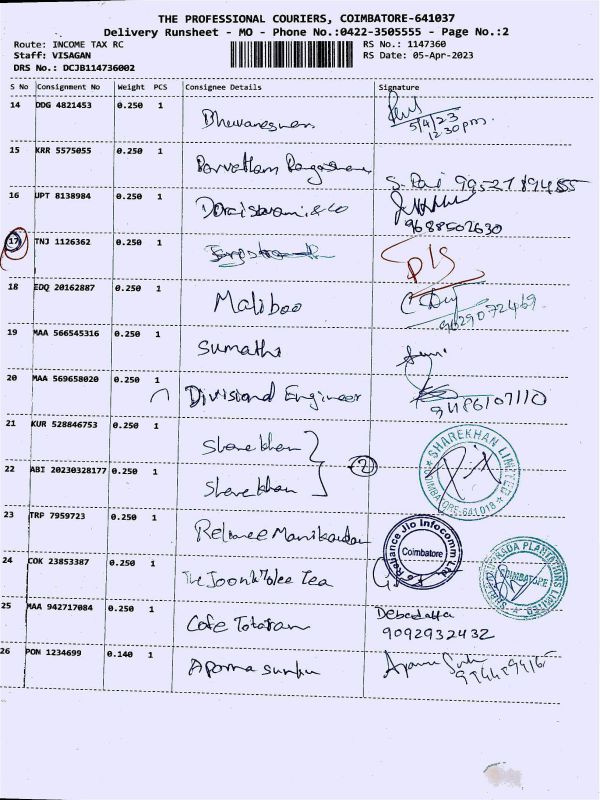 THE PROFESSIONAL COURIERS, COIMBATORE-641037
Delivery Runsheet - MO - Phone No.:0422-3505555 - Page No.:2
Route: INCOME TAX RC
RS No.: 1147360
Staff: VISAGAN
RS Date: 05-Apr-2023
DRS No.: DCJB114736002
S No Consignment No Weight PCS Consignee Details Signature
14 DDG 4821453 0.250 1
5/4/23
12.30 pm.
15 KRR 5575055 0.250 1
16 UPT 8138984 0.250 1 Doraiswami & co
9688502630
17 TNJ 1126362 0.250 1
18 EDQ 20162887 0.250 1 Maliboo
9629072469
19 MAA 566545316 0.250 1 Sumathi
20 MAA 569658020 0.250 1 Divisional Engineer
9486107110
21 KUR 528846753 0.250 1 Sharekhan
2
SHAREKHAN LIMITED
COIMBATORE-641018
22 ABI 20230328177 0.250 1 Sharekhan
23 TRP 7959723 0.250 1 Reliance Manikandan
Reliance Jio Infocomm Ltd.
Coimbatore
24 COK 23853387 0.250 1 The Joonktolee Tea
PLANTATIONS LIMITED
COIMBATORE
25 MAA 942717084 0.250 1 Cafe Totaram
Debadatta
9092932432
26 PON 1234699 0.140 1